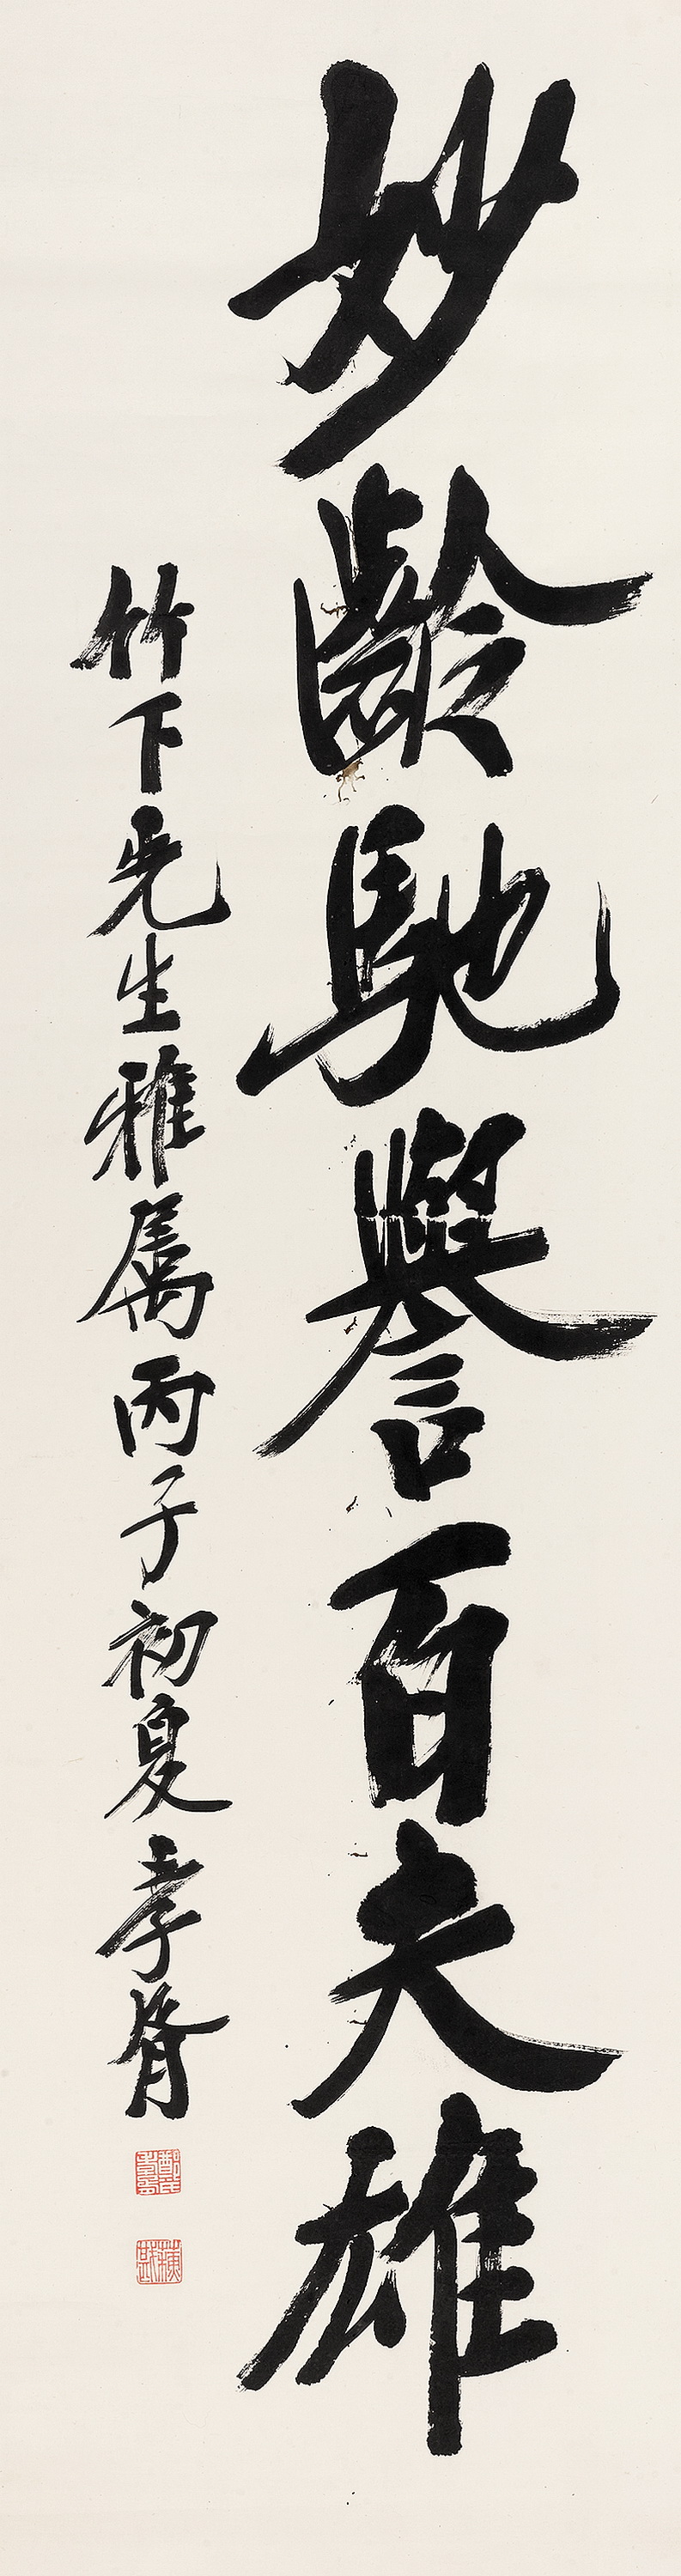 妙齡馳譽百夫雄
竹下先生雅属丙子初夏孝胥